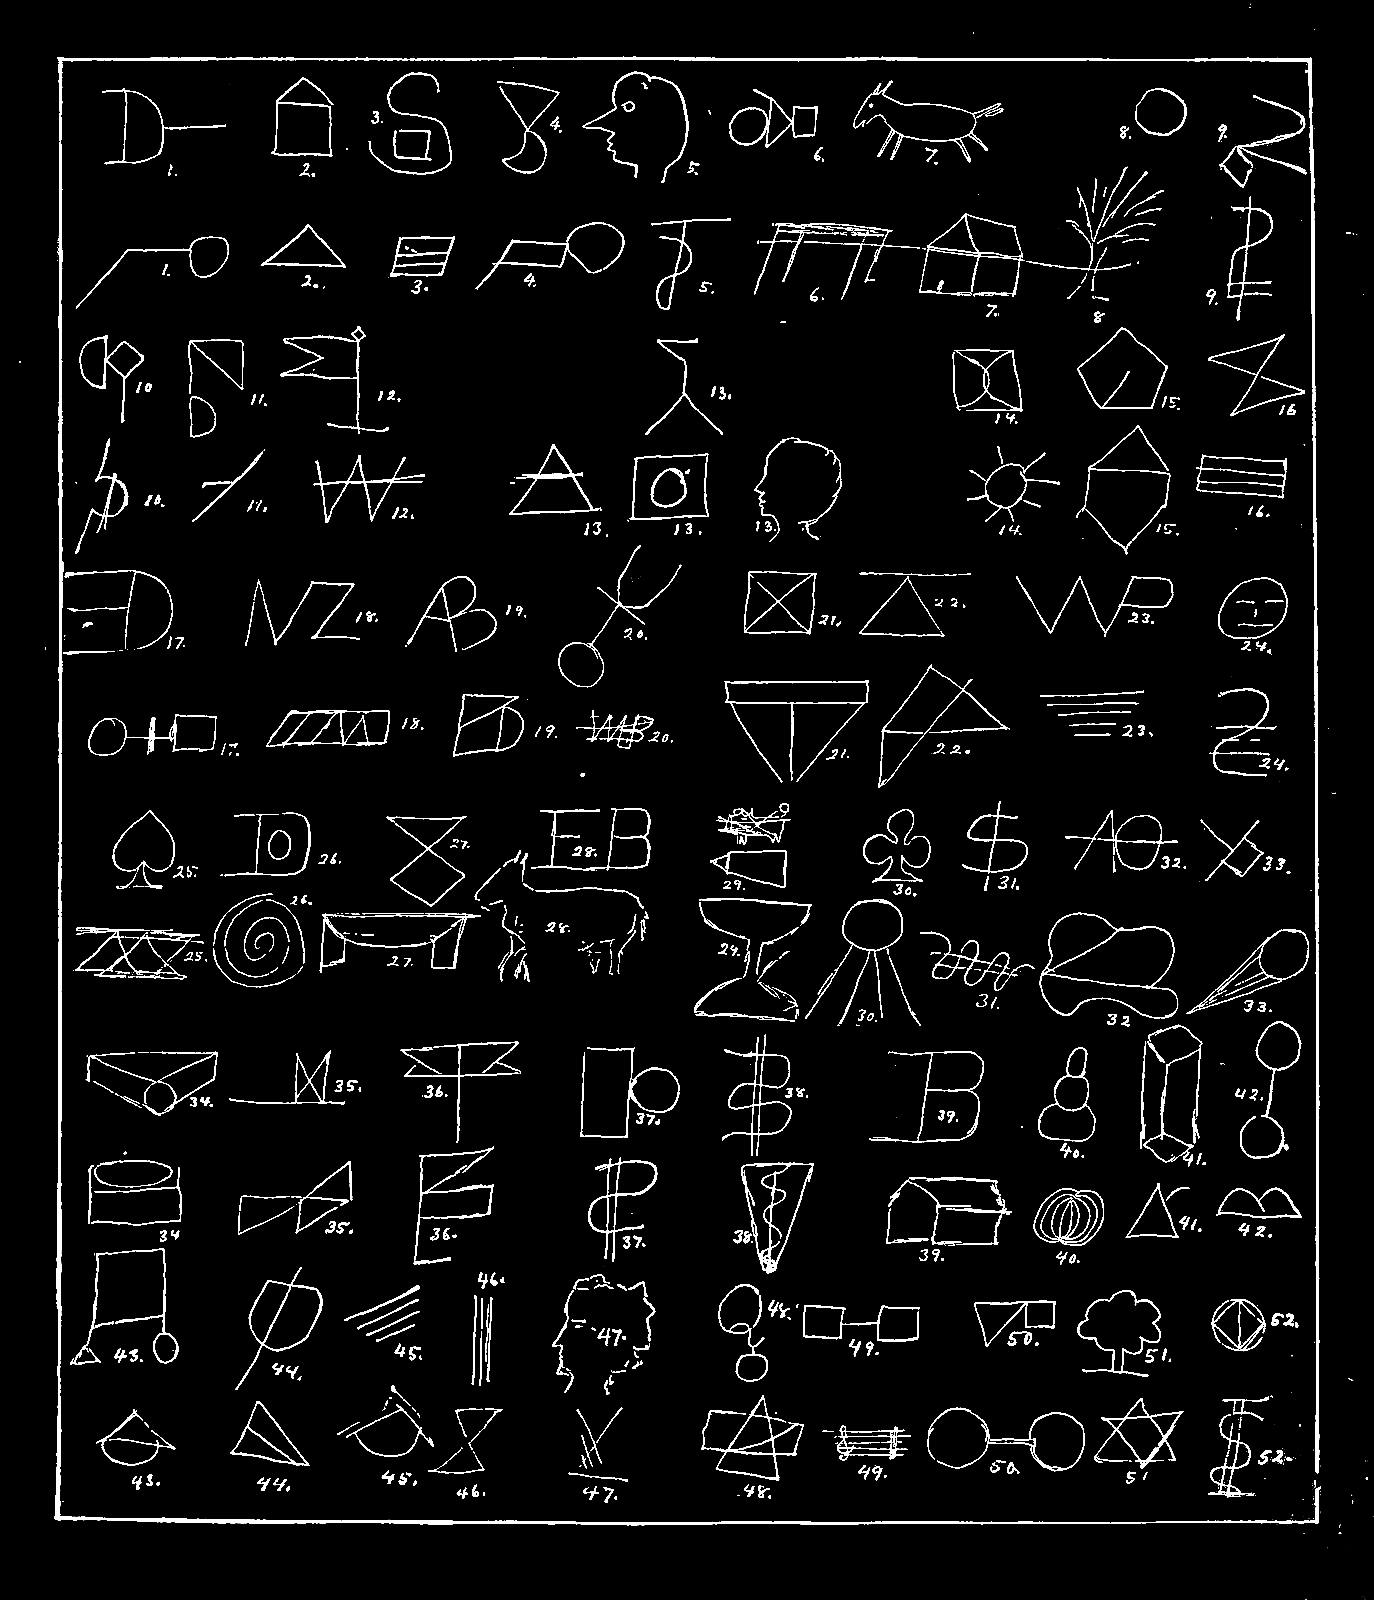 1. 2. 3. 4. 5. 6. 7. 8. 9.
1. 2. 3. 4. 5. 6. 7. 8 9.
10 11. 12. 13. 14. 15. 16
10. 11. 12. 13. 13. 13. 14. 15. 16.
17. NZ 18. AB 19. 20. 21. 22. WP 23. 24.
17. 18. 19. 20. 21. 22. 23. 24.
25. 26. 27. EB 28. 29. 30. $ 31. AO 32. 33.
25. 26. 27. 28. 29. 30. 31. 32 33.
34. 35. 36. 37. 38. B 39. 40. 41. 42.
34 35. 36. 37. 38 39. 40. 41. 42.
43. 44. 45. 46. 47. 48. 49. 50. 51. 52.
43. 44. 45. 46. 47. 48. 49. 50. 51 52.